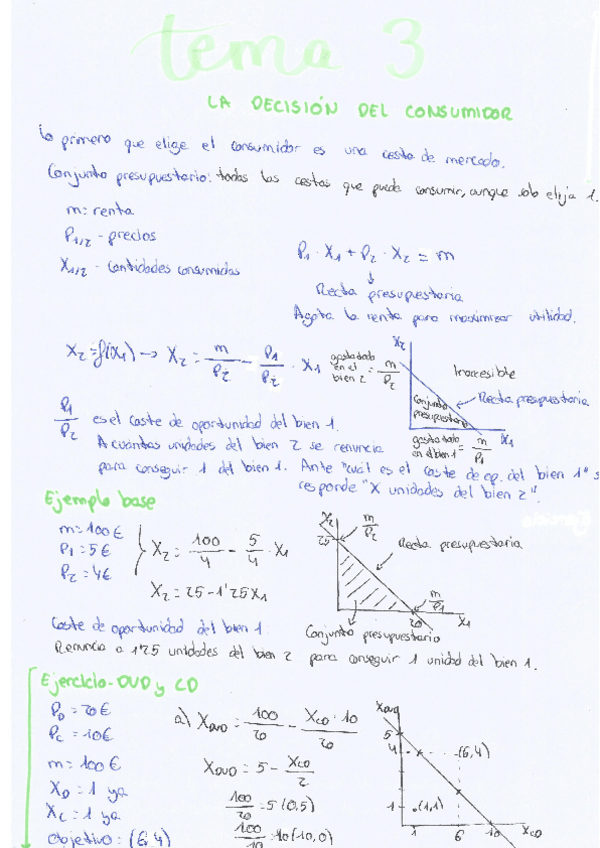 tema 3
LA DECISIÓN DEL CONSUMIDOR
Lo primero que elige el consumidor es una cesta de mercado.
Conjunto presupuestario: todas las cestas que puede consumir, aunque solo elija 1.
m: renta
P1/2 - precios
X1/2 - cantidades consumidas
P1 · X1 + P2 · X2 = m
↓
Recta presupuestaria
Agota la renta para maximizar utilidad.
X2 = f(x1) → X2 = m/P2 - P1/P2 · X1
gasta todo en el bien 2 = m/P2
X2
Inaccesible
Recta presupuestaria
Conjunto presupuestario
gasta todo en el bien 1 = m/P1
X1
P1/P2 es el coste de oportunidad del bien 1.
A cuántas unidades del bien 2 se renuncia
para conseguir 1 del bien 1. Ante "cuál es el coste de op. del bien 1" s
responde "X unidades del bien 2".
Ejemplo base
m = 100€
P1 = 5€
P2 = 4€
X2 = 100/4 - 5/4 · X1
X2 = 25 - 1'25X1
X2
25
m/P2
Recta presupuestaria
m/P1
20
X1
Conjunto presupuestario
Coste de oportunidad del bien 1
Renuncia a 1'25 unidades del bien 2 para conseguir 1 unidad del bien 1.
Ejercicio - DVD y CD
PD = 20€
PC = 10€
m = 100€
XD = 1 ya
XC = 1 ya
Objetivo: (6,4)
a) XDVD = 100/20 - XCD · 10/20
XDVD = 5 - XCD/2
100/20 = 5 (0,5)
100/10 = 10 (10,0)
XDVD
5
4
(6,4)
1
(1,1)
1
6
10
XCD